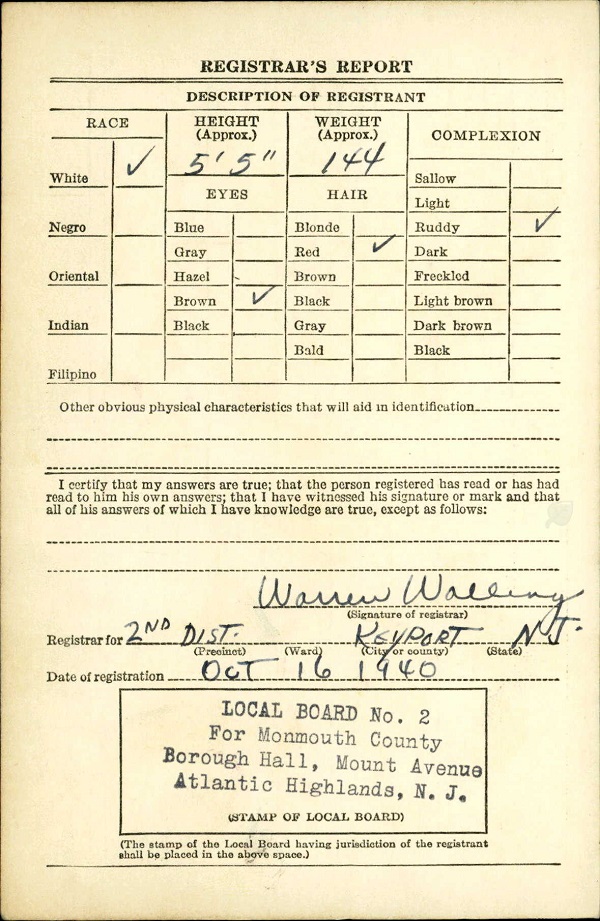 REGISTRAR'S REPORT
DESCRIPTION OF REGISTRANT
RACE
HEIGHT
(Approx.)
WEIGHT
(Approx.)
COMPLEXION
5' 5"
144
White ✓
Sallow
EYES
HAIR
Light
Negro
Blue
Blonde
Ruddy ✓
Gray
Red ✓
Dark
Oriental
Hazel
Brown
Freckled
Brown ✓
Black
Light brown
Indian
Black
Gray
Dark brown
Bald
Black
Filipino
Other obvious physical characteristics that will aid in identification
I certify that my answers are true; that the person registered has read or has had
read to him his own answers; that I have witnessed his signature or mark and that
all of his answers of which I have knowledge are true, except as follows:
Warren Walling
(Signature of registrar)
Registrar for 2ND DIST. KEYPORT N.J.
(Precinct) (Ward) (City or county) (State)
Date of registration OCT 16 1940
LOCAL BOARD No. 2
For Monmouth County
Borough Hall, Mount Avenue
Atlantic Highlands, N. J.
(STAMP OF LOCAL BOARD)
(The stamp of the Local Board having jurisdiction of the registrant
shall be placed in the above space.)